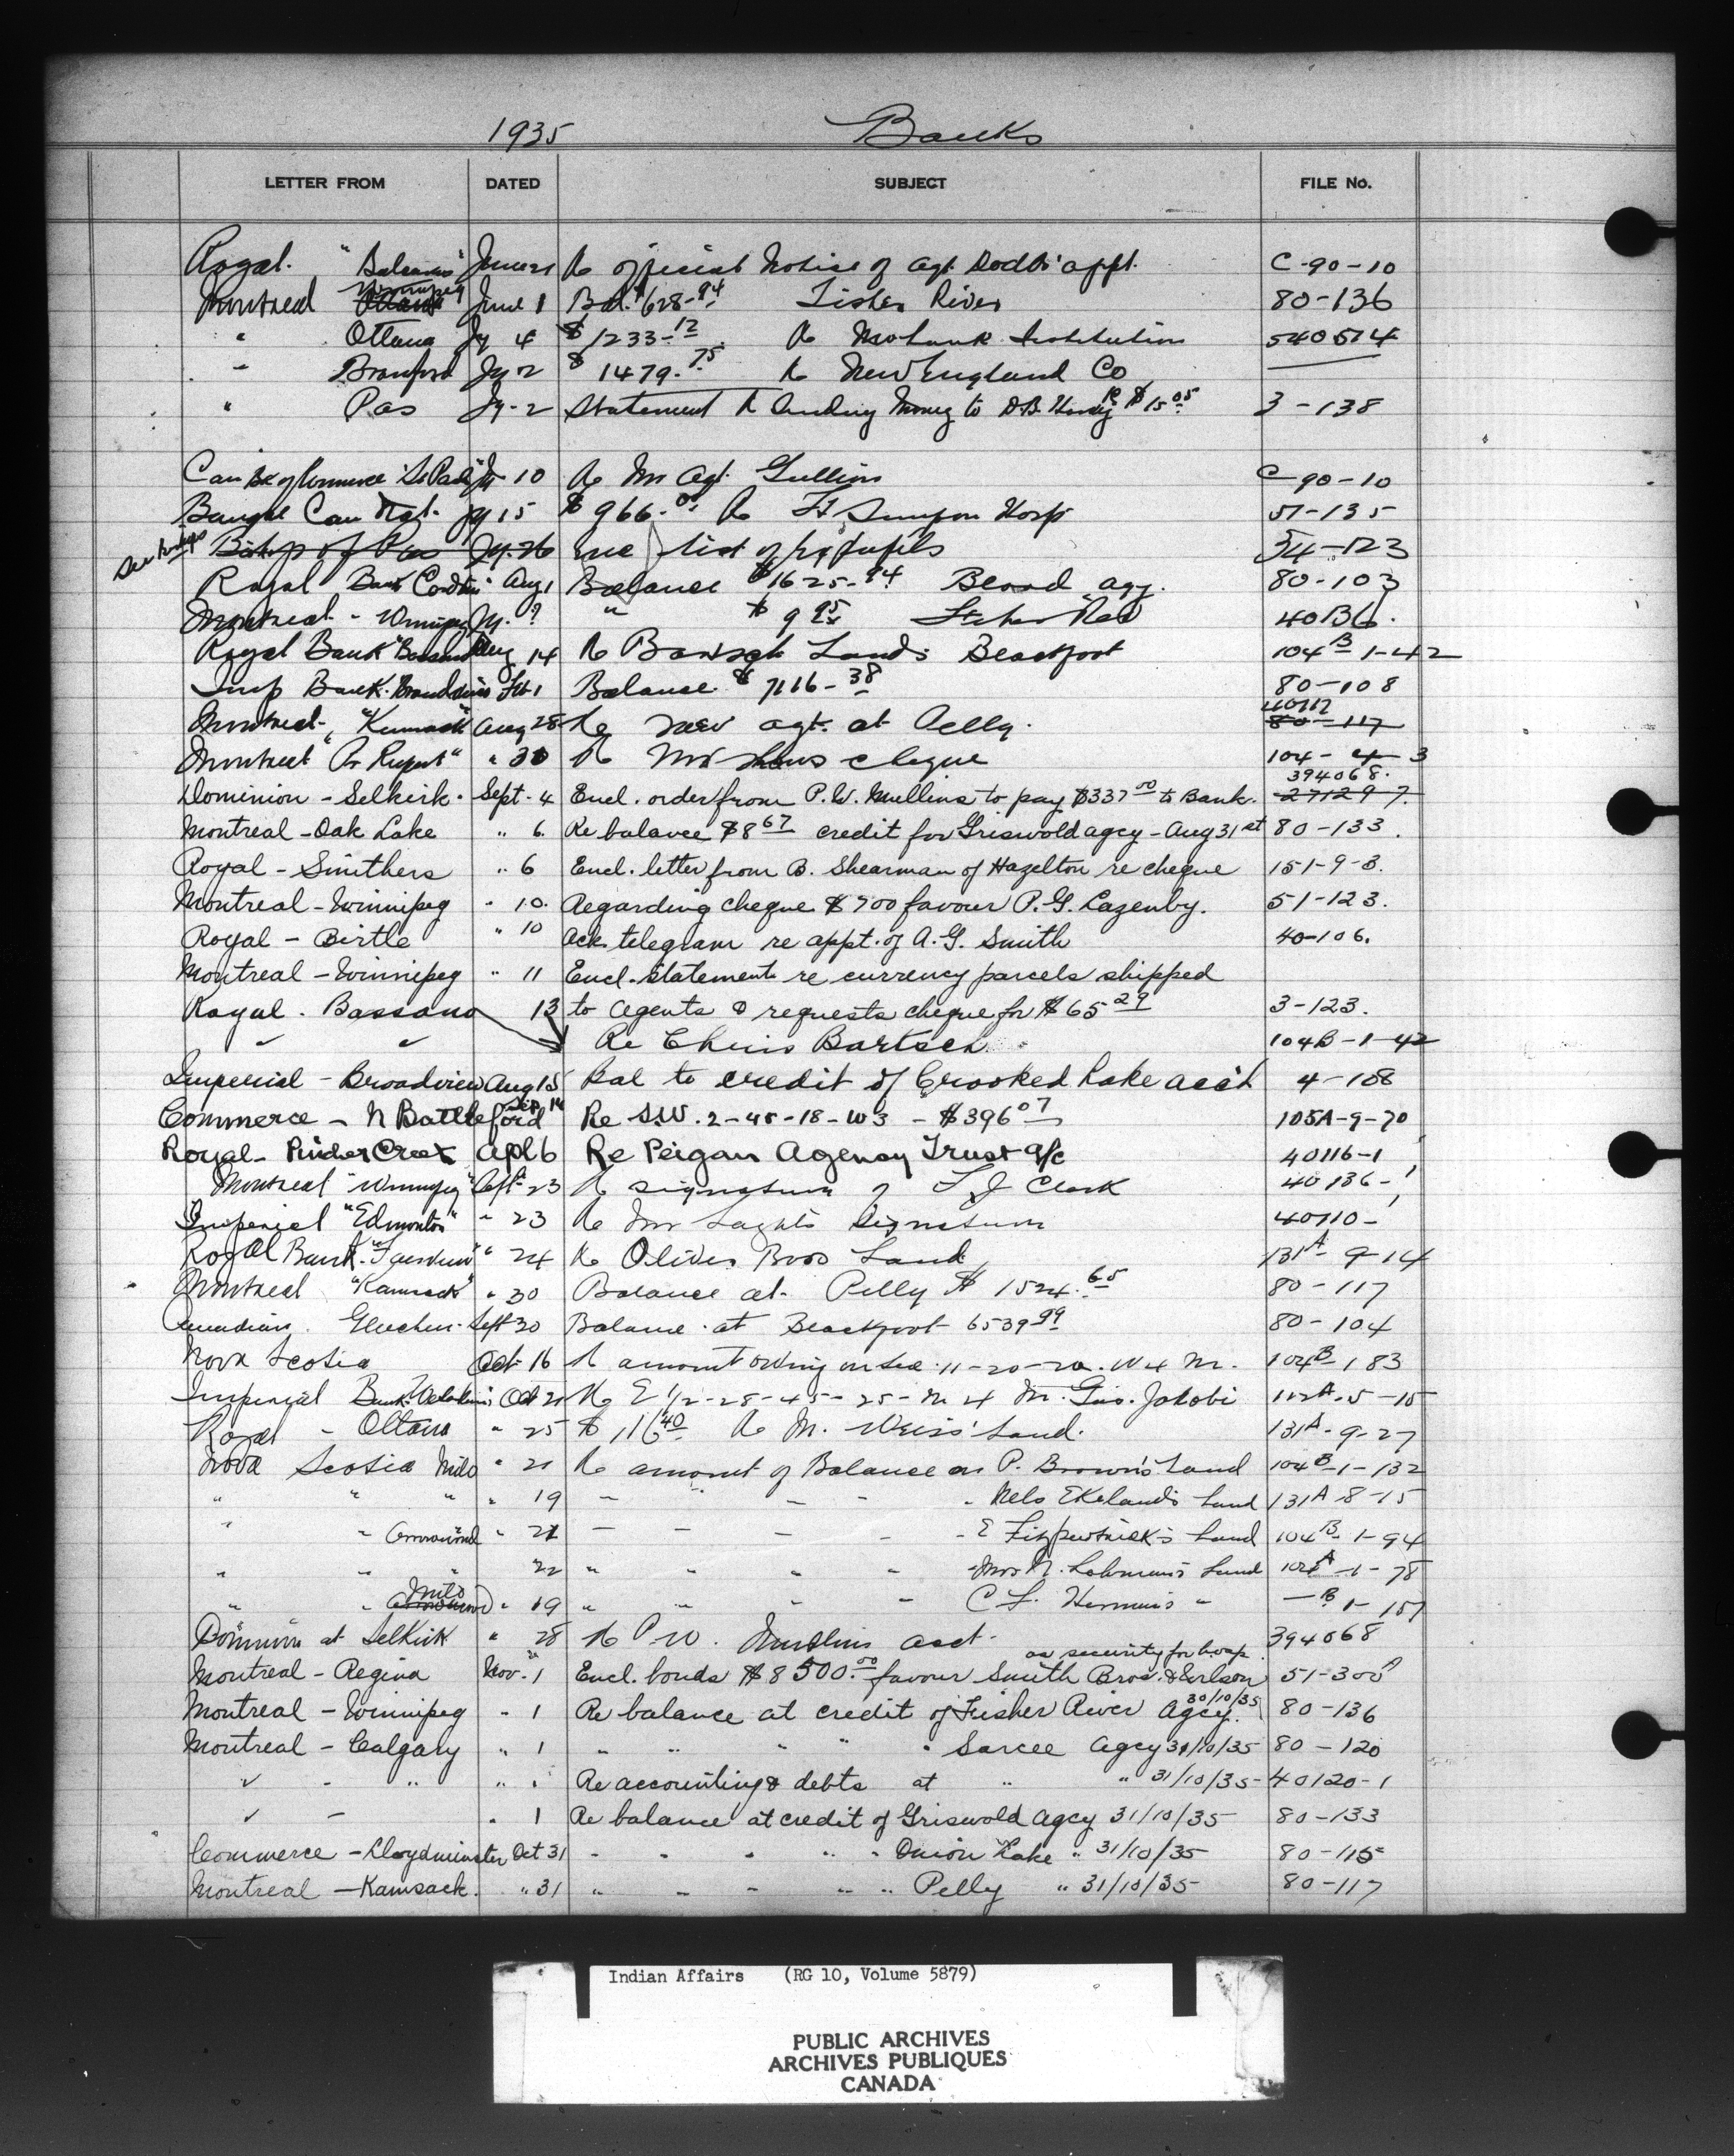 1935 Banks
LETTER FROM DATED SUBJECT FILE No.
Royal. June 21 Re official Notice of Agt. Dodds' appt. C-90-10
Montreal Winnipeg June 1 Bal. $628.94 Fisher River 80-136
" Ottawa Jy 4 $1233.12 Re Mohawk Institution 540514
" Branford Jy 2 $1479.75 Re New England Co
" Pas Jy-2 Statement Re sending Money to D.B. $15.05 3-138
Can Bk of Commerce Jy 10 Re Mr Agt. Gullion C-90-10
Banque Can Nat. Jy 15 $966. Re Ft Simpson Hosp 51-135
Bishop of Pas Jy-26 enc list of pupils 54-123
Royal Bank Aug 1 Balance $1625-94 Blood agy. 80-103
Montreal - Winnipeg Jy. ? " $9 40136.
Royal Bank "Bassano" Aug 14 Re Bartsch Lands Blackfoot 104B-1-42
Imp Bank. Balance $ 1116-38 80-108
Montreal, "Kamsack" Aug 28 Re new agt. at Pelly. 40117
80-117
Montreal "Pr Rupert" " 30 Re Mr cheque 104-4-3
394068.
Dominion - Selkirk. Sept. 4 Encl. order from P.W. Mullins to pay $337 00 to Bank. 271297.
Montreal - Oak Lake " 6. Re balance $8 67 credit for Griswold agcy - Aug 31st 80-133.
Royal - Smithers " 6 Encl. letter from B. Shearman of Hazelton re cheque 151-9-3.
Montreal - Winnipeg " 10. Regarding cheque $700 favour P.G. Lazenby. 51-123.
Royal - Birtle " 10 Ack. telegram re appt. of A.G. Smith 40-106.
Montreal - Winnipeg " 11 Encl. statement re currency parcels shipped
Royal. Bassano 13 to agents & requests cheque for $65 29 3-123.
Re Chris Bartsch 104B-1-42
Imperial - Broadview Aug 15 Bal to credit of Crooked Lake acc't 4-108
Commerce - N Battleford Sep. 14 Re S.W. 2-45-18-W3 - $396 07 105A-9-20
Royal - Pincher Creek Apl 6 Re Peigan Agency Trust a/c 40116-1
Montreal "Winnipeg" Sept 23 Re signature of T J Clark 40136-1
Imperial "Edmonton" " 23 Re Mr signature 40110-1
Royal Bank. " 24 Re Oliver Bros Land 131A-9-14
Montreal "Kamsack" " 30 Balance at Pelly $1524.65 80-117
Canadian. Gleichen. Sept 30 Balance at Blackfoot 6539 99 80-104
Nova Scotia Oct 16 Re amount owing on Sec. 11-20-20. W4 M. 104B-1 83
Imperial Bank Oct 21 Re E 1/2-28-45-25-W 4 M. Geo. Jakobi 112A-5-15
Royal - Ottawa " 25 $116 40 Re M. Weiss' Land. 131A-9-27
Nova Scotia Milo " 21 Re amount of Balance on P. Brown's Land 104B-1-132
" " " " 19 " " " " Nels Ekeland's Land 131A-8-15
" " " 21 " " " " E Fitzpatrick's Land 104B-1-94
" " " 22 " " " " Mrs N. Lohman's Land 104A-1-78
" " Milo " 19 " " " " C L. " -B 1-151
Dominion at Selkirk " 28 Re P W. Mullins acct. 394068
as security for hosp.
Montreal - Regina Nov. 1 Encl. bonds $8500.00 favour Smith Bros. & Wilson 51-300A
Montreal - Winnipeg " 1 Re balance at credit of Fisher River Agcy. 30/10/35 80-136
Montreal - Calgary " 1 " " " " " Sarcee Agcy 31/10/35 80-120
" - " " 1 Re accounting & debts at " " 31/10/35 40120-1
" - " 1 Re balance at credit of Griswold Agcy 31/10/35 80-133
Commerce - Lloydminster Oct 31 " " " " " Onion Lake " 31/10/35 80-115
Montreal - Kamsack. " 31 " " " " " Pelly " 31/10/35 80-117
Indian Affairs (RG 10, Volume 5879)
PUBLIC ARCHIVES
ARCHIVES PUBLIQUES
CANADA